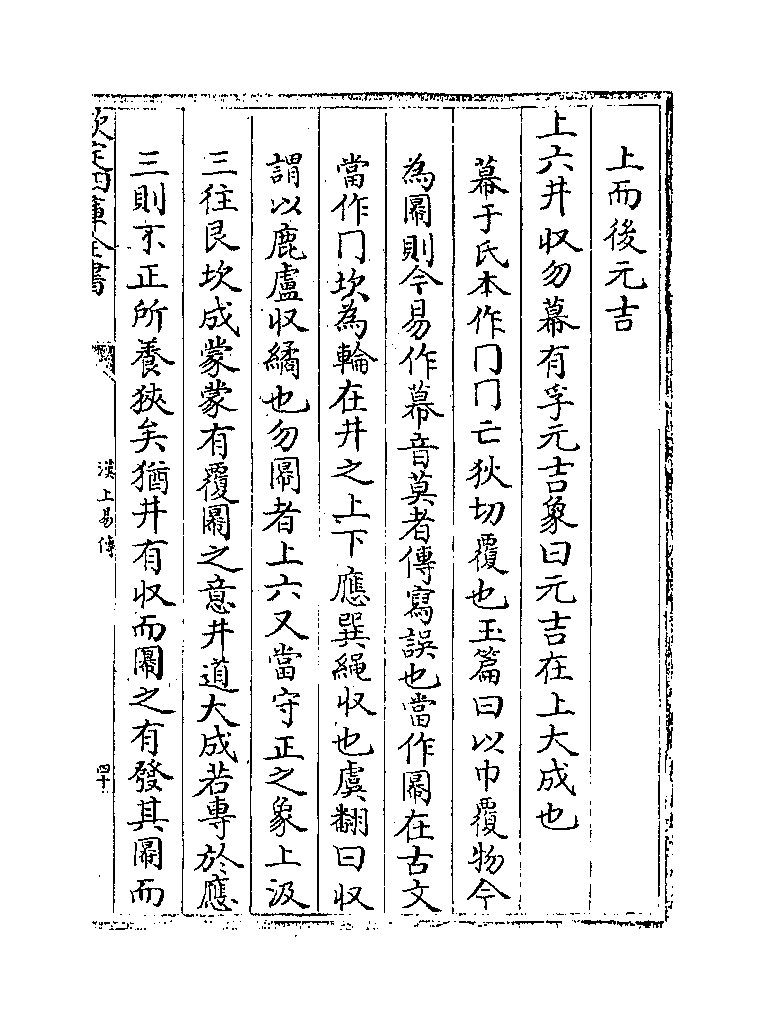 上而後元吉
上六井収勿幕有孚元吉象曰元吉在上大成也
幕于氏本作冂冂亡狄切覆也玉篇曰以巾覆物今
為冪則今易作幕音莫者傳寫誤也當作冪在古文
當作冂坎為輪在井之上下應巽繩収也虞翻曰収
謂以鹿盧収繘也勿冪者上六又當守正之象上汲
三往艮坎成蒙蒙有覆冪之意井道大成若專於應
三則不正所養狹矣猶井有収而冪之有發其冪而
欽定四庫全書
漢上易傳
四十